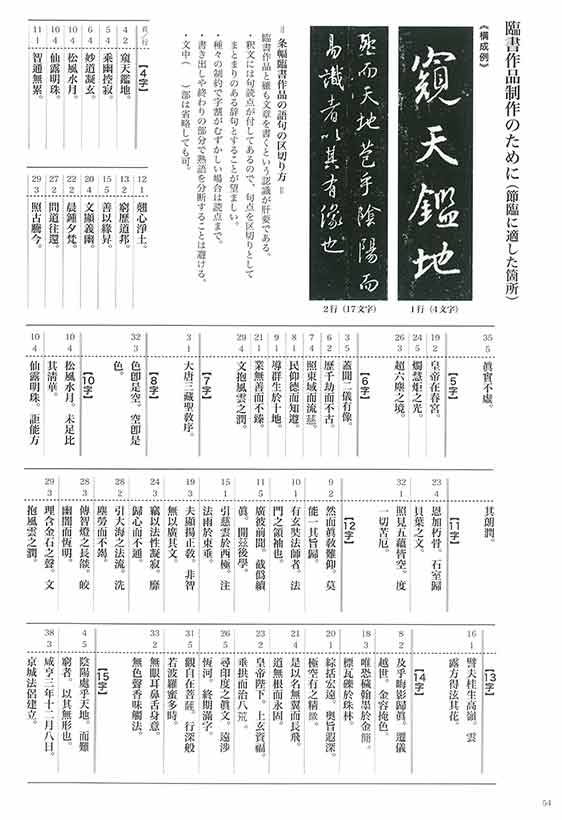 臨書作品制作のために（節臨に適した箇所）
《構成例》
窺天鑑地
1行（4文字）
蓋而天地苞乎陰陽而
易識者以其有像也
2行（17文字）
＝条幅臨書作品の語句の区切り方＝
臨書作品と雖も文章を書くという認識が肝要である。
・釈文には句読点が付してあるので、句点を区切りとして
まとまりのある辞句とすることが望ましい。
・種々の制約で字割がむずかしい場合は読点まで。
・書き出しや終わりの部分で熟語を分断することは避ける。
・文中（　　）部は省略しても可。
頁／行
【4字】
4 2 窺天鑑地。
5 4 乗幽控寂。
6 4 妙道凝玄。
10 4 松風水月。
10 4 仙露明珠。
11 1 智通無累。
12 1 翹心浄土。
13 2 窮歴道邦。
15 5 善以緣昇。
20 4 文顯義幽。
22 2 晨鍾夕梵。
27 2 問道往還。
29 3 照古騰今。
35 5 眞實不虛。
【5字】
19 2 皇帝在春宮。
24 5 燭慧炬之光。
26 3 超六塵之境。
【6字】
3 5 蓋聞二儀有像。
6 2 歷千劫而不古。
7 4 照東域而流慈。
8 1 民仰德而知遵。
9 1 導群生於十地。
21 1 業無善而不臻。
29 4 文抱風雲之潤。
【7字】
3 1 大唐三藏聖教序。
【8字】
32 3 色卽是空。空卽是
色。
【10字】
10 4 松風水月。未足比
其清華。
10 4 仙露明珠。詎能方
其朗潤。
【11字】
23 4 恩加朽骨。石室歸
貝葉之文。
32 1 照見五蘊皆空。度
一切苦厄。
【12字】
9 2 然而眞教難仰。莫
能一其旨歸。
10 1 有玄奘法師者。法
門之領袖也。
11 5 廣彼前聞。截僞續
眞。開茲後學。
15 1 引慈雲於西極。注
法雨於東垂。
19 3 夫顯揚正教。非智
無以廣其文。
24 3 竊以法性凝寂。靡
歸心而不通。
28 2 引大海之法流。洗
塵勞而不竭。
28 3 傳智燈之長燄。皎
幽闇而恆明。
29 3 理含金石之聲。文
抱風雲之潤。
【13字】
16 1 譬夫桂生高嶺。雲
露方得泫其花。
【14字】
8 2 及乎晦影歸眞。遷儀
越世。金容掩色。
18 3 唯恐穢翰墨於金簡。
標瓦礫於珠林。
20 1 綜括宏遠。奧旨遐深。
極空有之精微。
21 4 是以名無翼而長飛。
道無根而永固。
23 2 皇帝陛下。上玄資福。
垂拱而治八荒。
26 5 尋印度之眞文。遠涉
恆河。終期滿字。
31 5 觀自在菩薩。行深般
若波羅蜜多時。
33 2 無眼耳鼻舌身意。
無色聲香味觸法。
【15字】
4 5 陰陽處乎天地。而難
窮者。以其無形也。
38 3 咸亨三年十二月八日。
京城法侶建立。
54